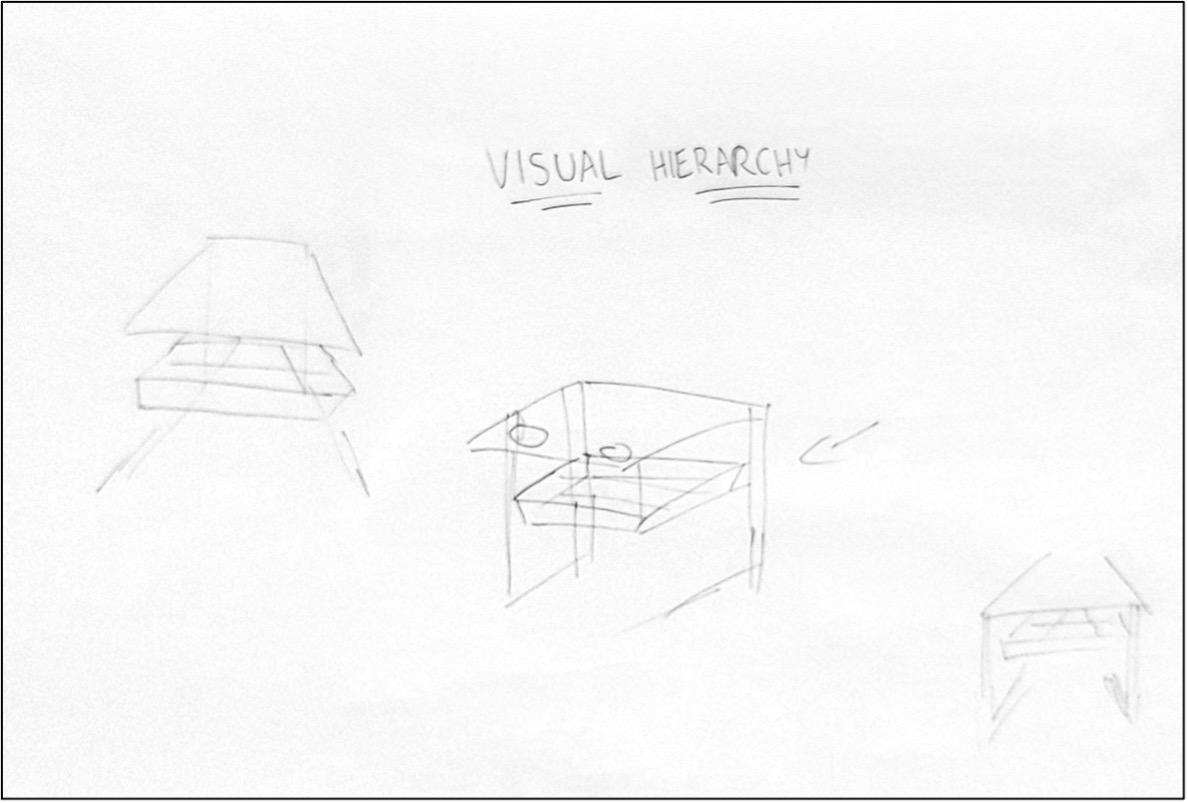 VISUAL HIERARCHY